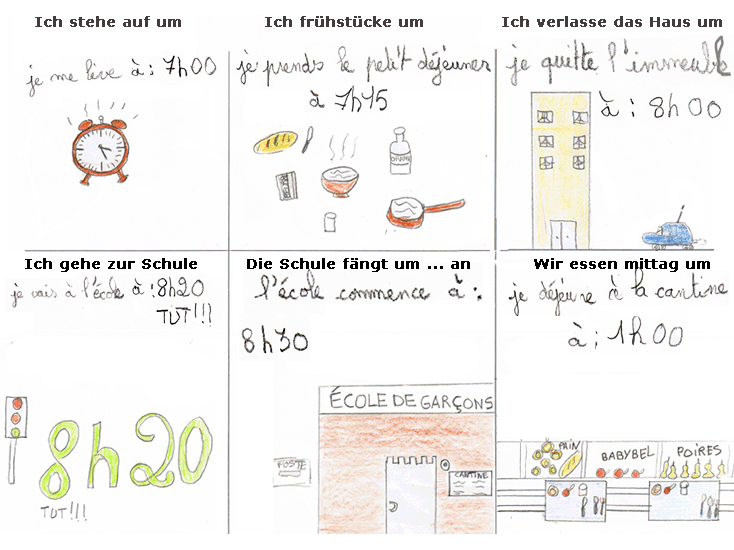 Ich stehe auf um
je me lève à : 7h00
Ich frühstücke um
je prends le petit déjeuner
à 7h15
ORANGE
Ich verlasse das Haus um
je quitte l'immeuble
à : 8h00
Ich gehe zur Schule
je vais à l'école à : 8h20
TUT!!!
8h20
TUT!!!
Die Schule fängt um ... an
l'école commence à :
8h30
ÉCOLE DE GARÇONS
POSTE
CANTINE
Wir essen mittag um
je déjeune à la cantine
à : 1h00
PAIN
BABYBEL
POIRES